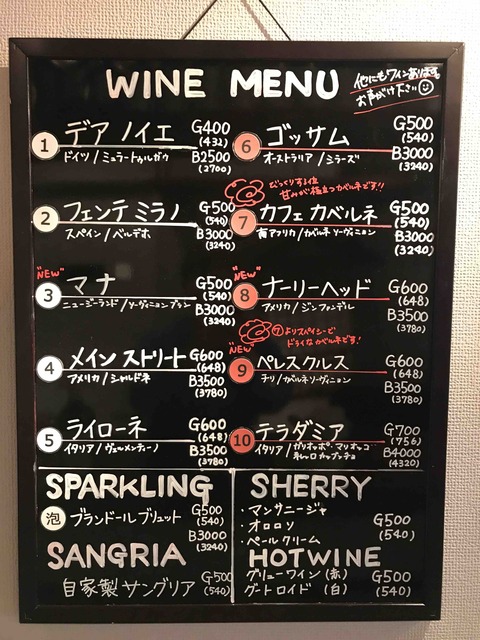 WINE MENU
他にもワインあります
お声がけ下さい
1 デア ノイエ G400
(432)
ドイツ/ミュラートゥルガウ B2500
(2700)
2 フェンテ ミラノ G500
(540)
スペイン/ベルデホ B3000
(3240)
"NEW"
3 マナ G500
(540)
ニュージーランド/ソーヴィニョンブラン B3000
(3240)
4 メイン ストリート G600
(648)
アメリカ/シャルドネ B3500
(3780)
5 ライローネ G600
(648)
イタリア/ヴェルメンティーノ B3500
(3780)
6 ゴッサム G500
(540)
オーストラリア/シラーズ B3000
(3240)
びっくりする位
甘みが極立つカベルネです!!
7 カフェ カベルネ G500
(540)
南アフリカ/カベルネソーヴィニョン B3000
(3240)
"NEW"
8 ナーリーヘッド G600
(648)
アメリカ/ジンファンデル B3500
(3780)
⑦よりスパイシーで
ドライなカベルネです!
"NEW"
9 ペレス クルス G600
(648)
チリ/カベルネソーヴィニョン B3500
(3780)
10 テラダミア G700
(756)
イタリア/ガリオッポ・マリオッコ B4000
ネレロカップッチョ (4320)
SPARKLING
泡 ブランドールブリュット G500
(540)
B3000
(3240)
SANGRIA
自家製サングリア G500
(540)
SHERRY
・マンサニージャ
・オロロソ G500
・ペールクリーム (540)
HOTWINE
グリューワイン(赤) G500
グートロイド (白) (540)